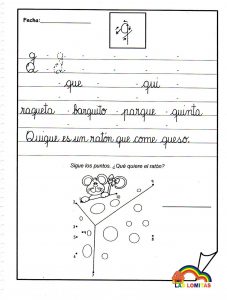 Fecha:
q
q q
Q
que qui
raqueta barquito parque quinta
Quique es un ratón que come queso.
Sigue los puntos. ¿Qué quiere el ratón?
LAS LOMITAS